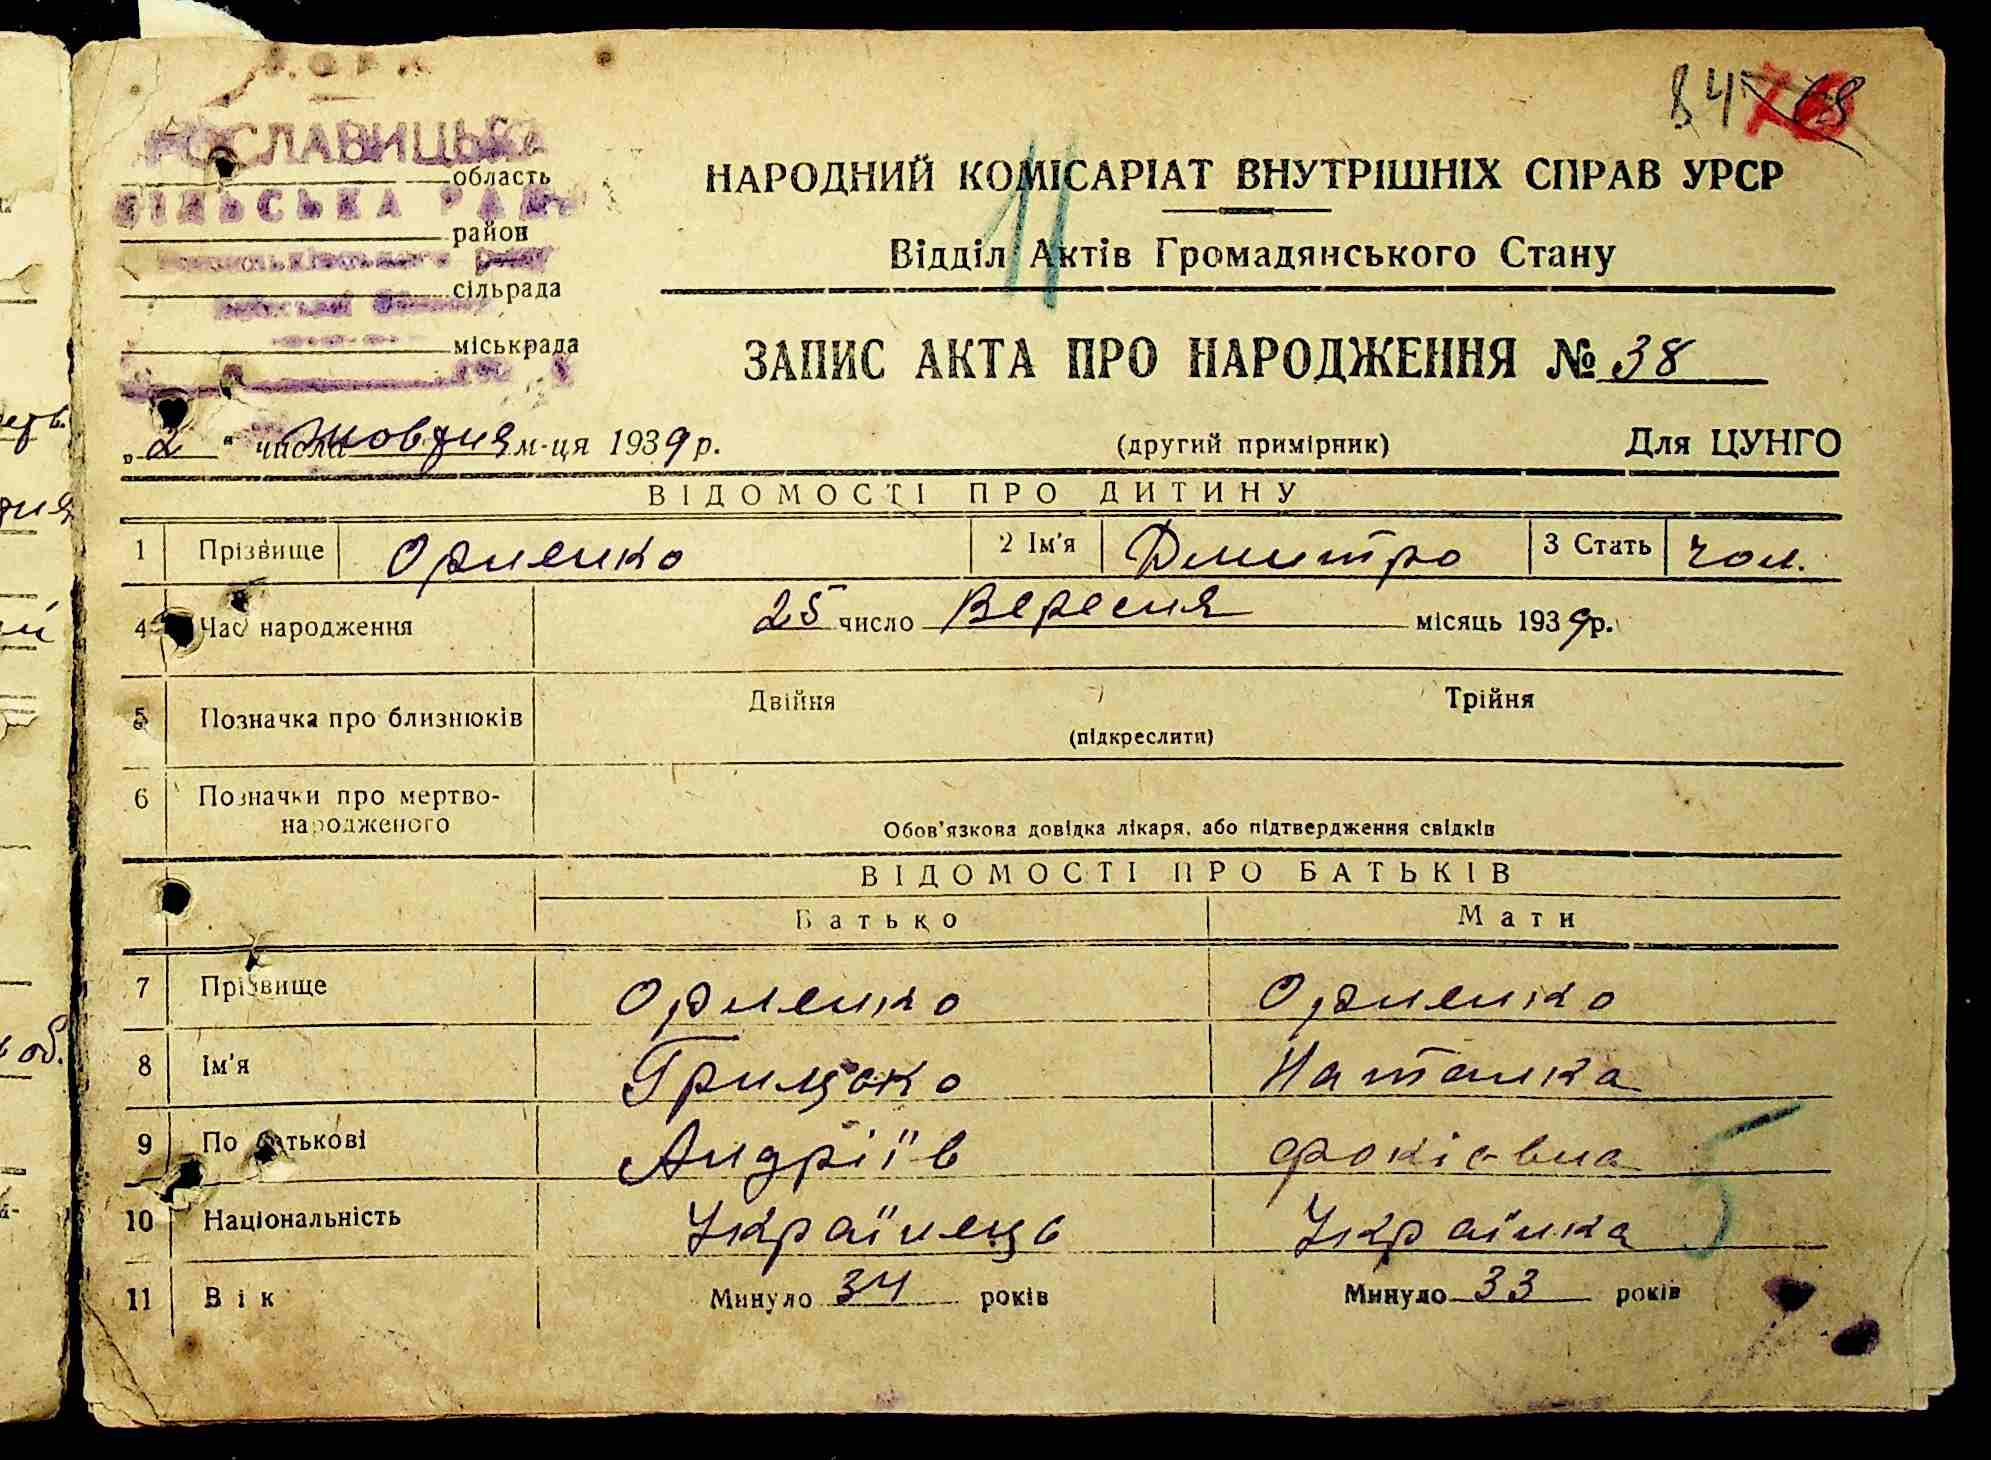 84 68
СЛАВИЦЬКА
область
СІЛЬСЬКА РАДА
район
сільрада
міськрада
НАРОДНИЙ КОМІСАРІАТ ВНУТРІШНІХ СПРАВ УРСР
Відділ Актів Громадянського Стану
ЗАПИС АКТА ПРО НАРОДЖЕННЯ № 38
„2“ числа жовтня м-ця 1939 р.
(другий примірник)
Для ЦУНГО
ВІДОМОСТІ ПРО ДИТИНУ
1 Прізвище Орленко 2 Ім'я Дмитро 3 Стать чол.
4 Час народження 25 число Вересня місяць 1939 р.
5 Позначка про близнюків Двійня Трійня
(підкреслити)
6 Позначки про мертво-
народженого
Обов'язкова довідка лікаря, або підтвердження свідків
ВІДОМОСТІ ПРО БАТЬКІВ
Батько Мати
7 Прізвище Орленко Орленко
8 Ім'я Грицько Наталка
9 По батькові Андріїв Фокієвна
10 Національність Українець Українка
11 Вік Минуло 34 років Минуло 33 років